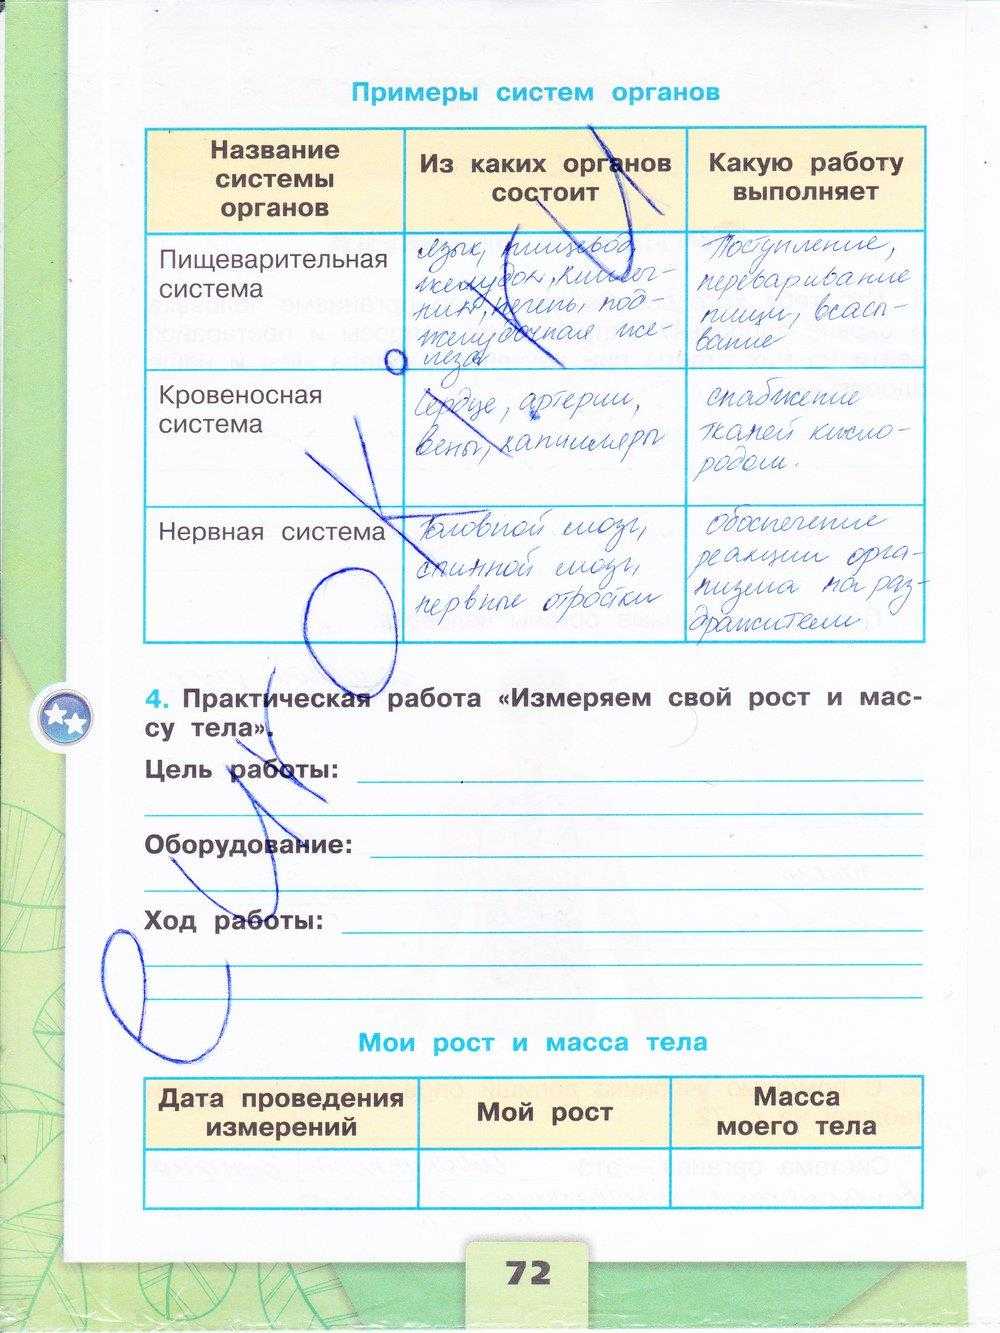 Примеры систем органов
Название
системы
органов
Из каких органов
состоит
Какую работу
выполняет
Пищеварительная
система
язык, пищевод,
желудок, кишеч-
ник, печень, под-
желудочная же-
леза
Поступление,
переваривание
пищи, всасы-
вание
Кровеносная
система
Сердце, артерии,
вены, капилляры
снабжение
тканей кисло-
родом.
Нервная система
Головной мозг,
спинной мозг,
нервные отростки
обеспечение
реакции орга-
низма на раз-
дражители.
4. Практическая работа «Измеряем свой рост и мас-
су тела».
Цель работы:
Оборудование:
Ход работы:
Мои рост и масса тела
Дата проведения
измерений
Мой рост
Масса
моего тела
72